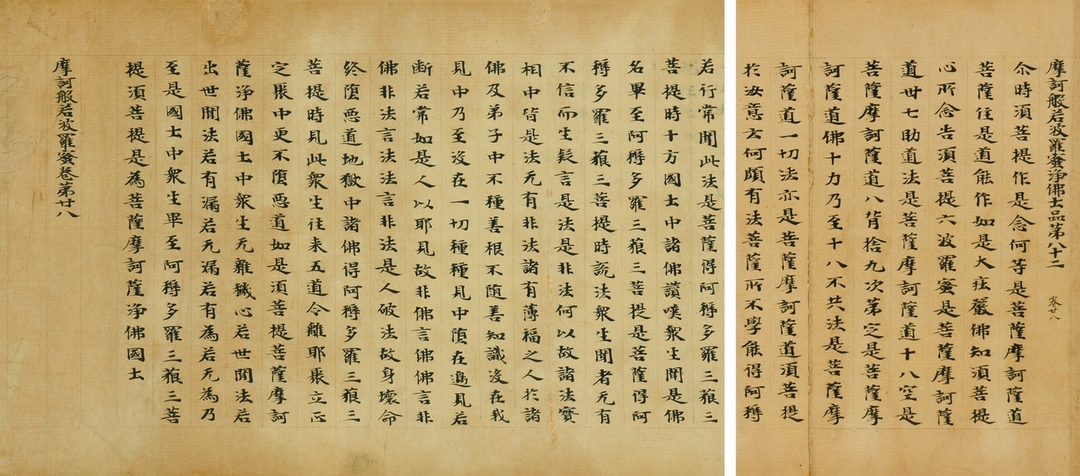 摩訶般若波羅蜜淨佛土品第八十二 卷廿八
尒時須菩提作是念何等是菩薩摩訶薩道
菩薩住是道能作如是大莊嚴佛知須菩提
心所念告須菩提六波羅蜜是菩薩摩訶薩
道卅七助道法是菩薩摩訶薩道十八空是
菩薩摩訶薩道八背捨九次第定是菩薩摩
訶薩道佛十力乃至十八不共法是菩薩摩
訶薩道一切法亦是菩薩摩訶薩道須菩提
扵汝意云何頗有法菩薩所不學能得阿耨
若行常聞此法是菩薩得阿耨多羅三藐三
菩提時十方國土中諸佛讚嘆衆生聞是佛
名畢至阿耨多羅三藐三菩提是菩薩得阿
耨多羅三藐三菩提時說法衆生聞者无有
不信而生疑言是法是非法何以故諸法實
相中皆是法无有非法諸有薄福之人扵諸
佛及弟子中不種善根不隨善知識沒在我
見中乃至沒在一切種種見中墮在邊見若
断若常如是人以耶見故非佛言佛佛言非
佛非法言法法言非法是人破法故身壞命
終墮惡道地獄中諸佛得阿耨多羅三藐三
菩提時見此衆生往来五道令離耶聚立正
定聚中更不墮惡道如是須菩提菩薩摩訶
薩淨佛國土中衆生无雜穢心若世間法若
出世間法若有漏若无漏若有為若无為乃
至是國土中衆生畢至阿耨多羅三藐三菩
提須菩提是為菩薩摩訶薩淨佛國土
摩訶般若波羅蜜卷第廿八